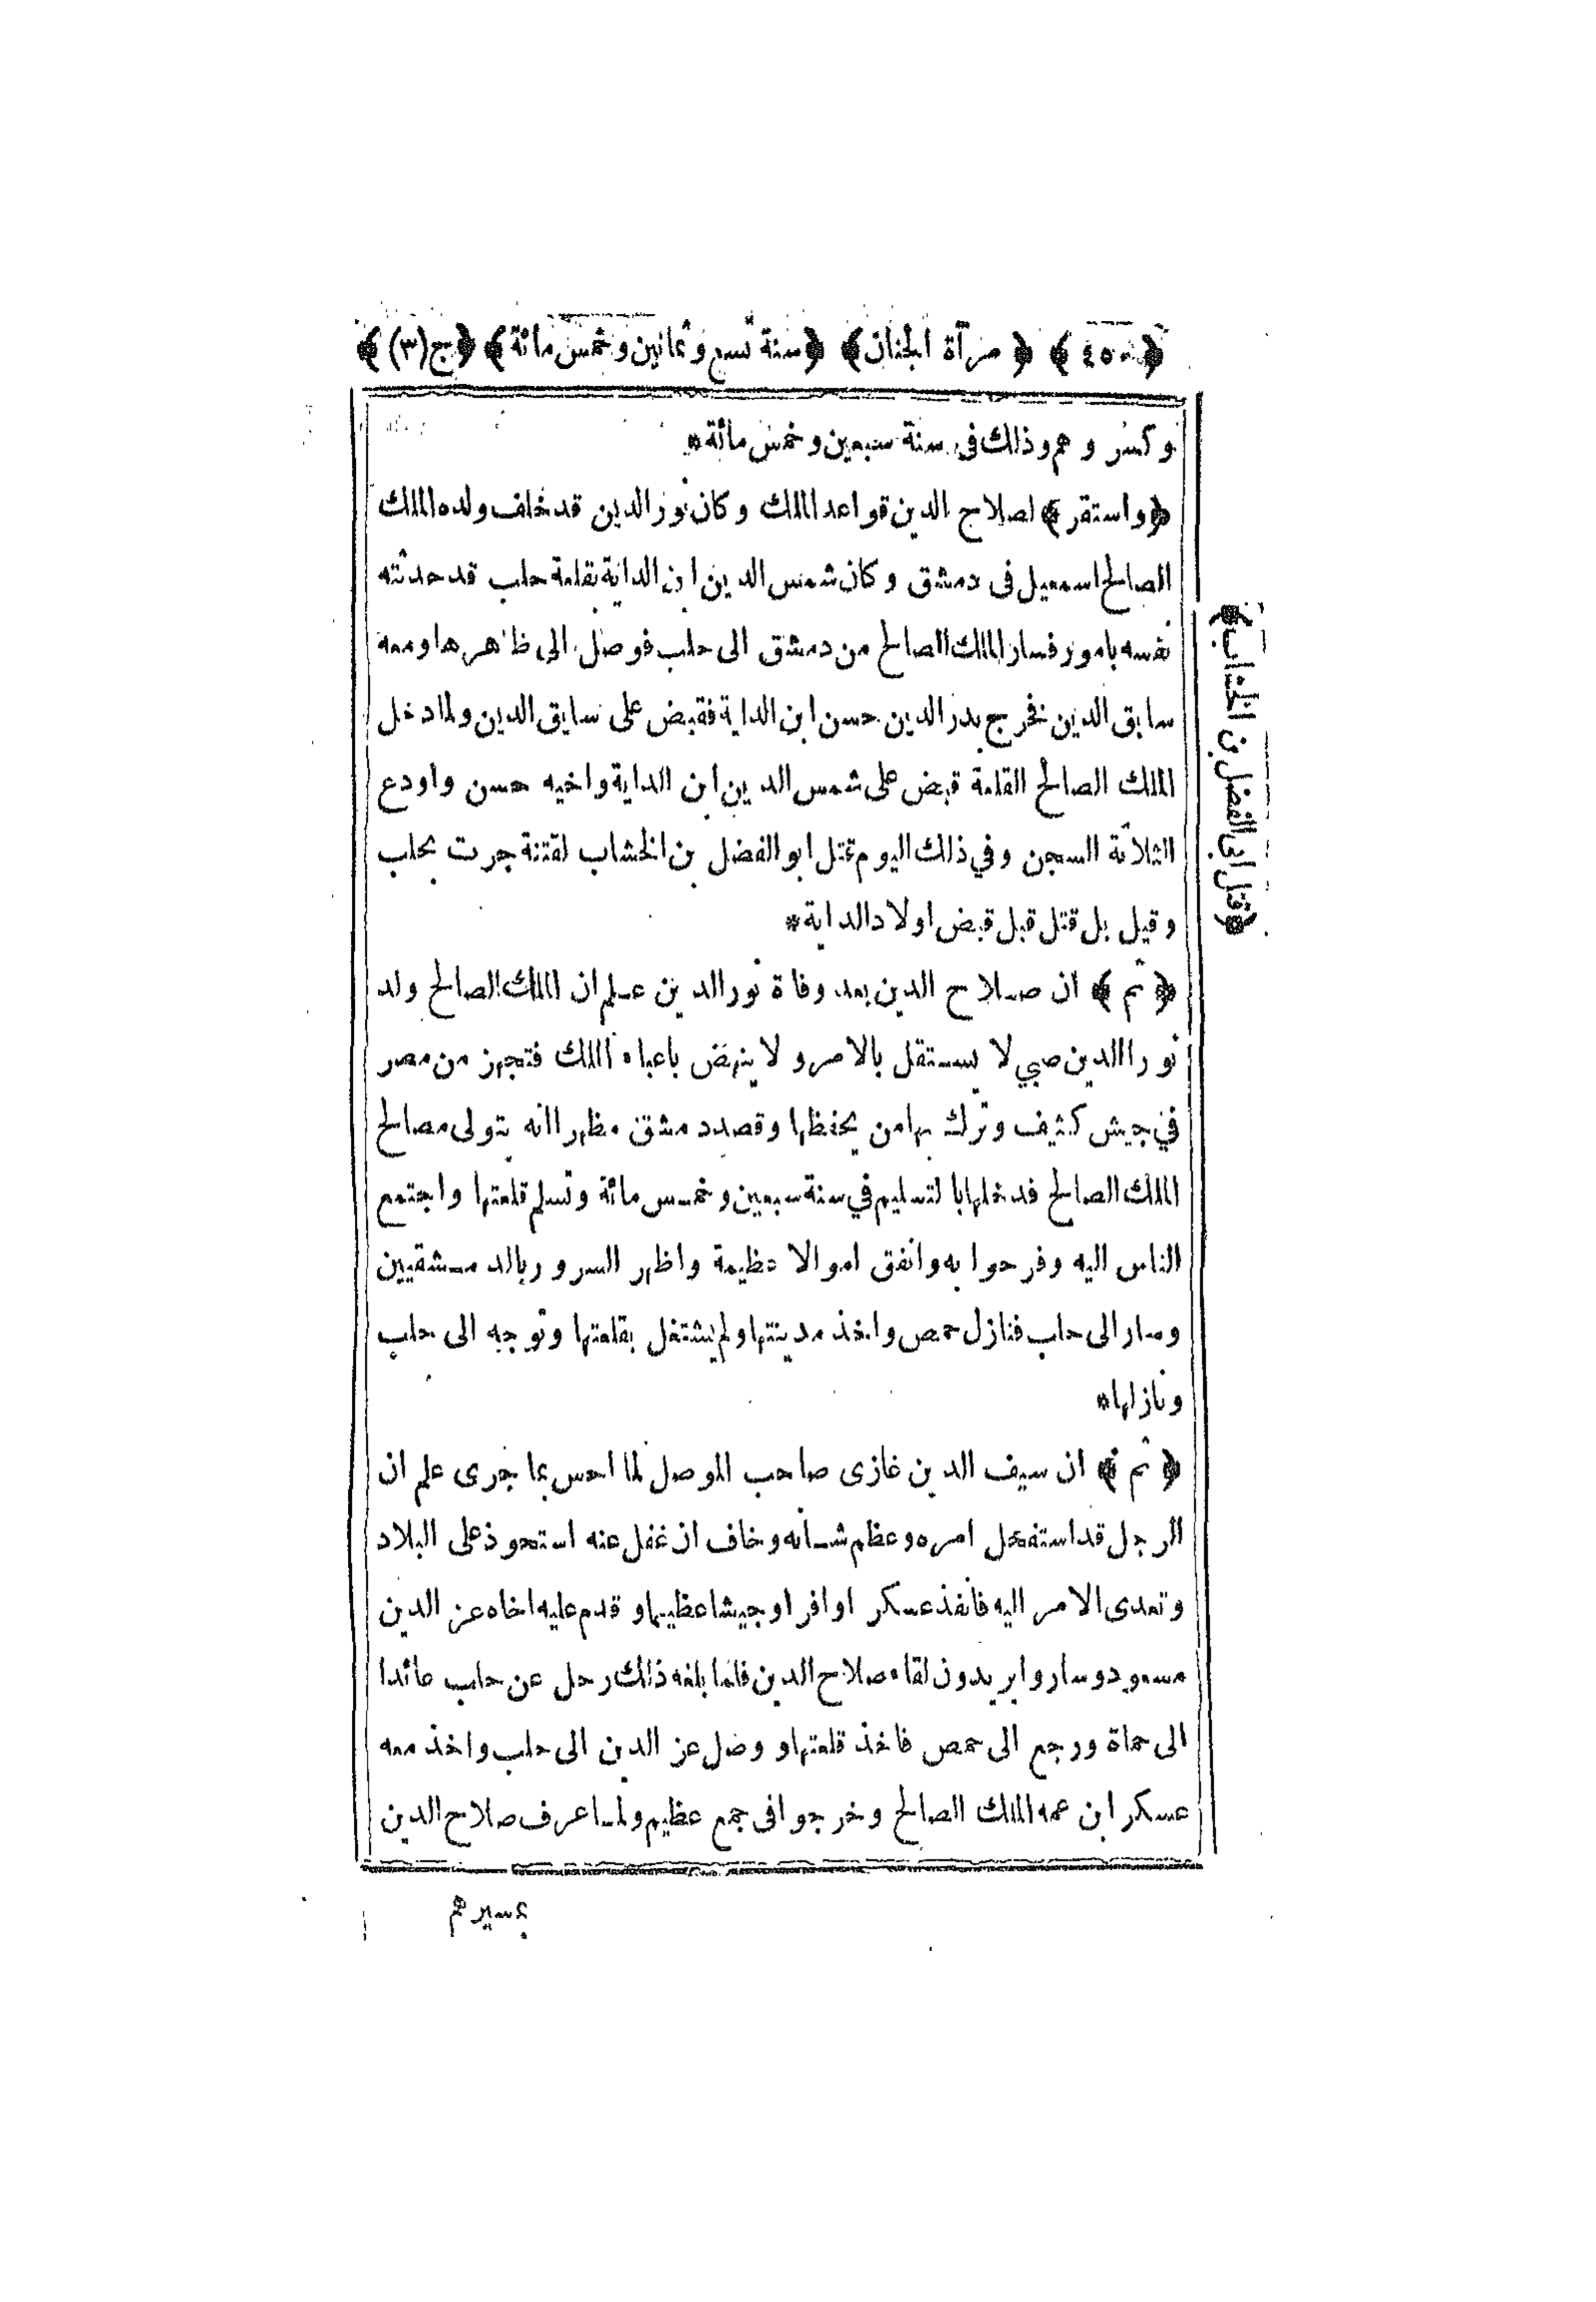 ﴿٤٥٠﴾ ﴿مرآة الجنان﴾ ﴿سنة تسع وثمانين وخمس مائة﴾ ﴿ج(٣)﴾
وكسروهم وذلك فى سنة سبعين وخمس مائة*
﴿واستقر﴾ لصلاح الدين قواعد الملك وكان نور الدين قد خلف ولده الملك
الصالح اسمعيل فى دمشق وكان شمس الدين ابن الداية بقلعة حلب قد حدثته
نفسه بامور فسار الملك الصالح من دمشق الى حلب فوصل الى ظاهرها ومعه
سابق الدين فخرج بدر الدين حسن ابن الداية فقبض على سابق الدين ولما دخل
الملك الصالح القلعة قبض على شمس الدين ابن الداية واخيه حسن واودع
الثلاثة السجن وفي ذلك اليوم قتل ابو الفضل بن الخشاب لفتنة جرت بحلب
وقيل بل قتل قبل قبض اولاد الداية*
﴿ثم﴾ ان صلاح الدين بعد وفاة نور الدين علم ان الملك الصالح ولد
نور الدين صبي لا يستقل بالامر ولا ينهض باعباء الملك فتجهز من مصر
في جيش كثيف وترك بها من يحفظها وقصد دمشق مظهرا انه يتولى مصالح
الملك الصالح فدخلها بالتسليم في سنة سبعين وخمس مائة وتسلم قلعتها واجتمع
الناس اليه وفرحوا به وانفق اموالا عظيمة واظهر السرور بالدمشقيين
وسار الى حلب فنازل حمص واخذ مدينتها ولم يشتغل بقلعتها وتوجه الى حلب
ونازلها*
﴿ثم﴾ ان سيف الدين غازى صاحب الموصل لما احس بما جرى علم ان
الرجل قد استفحل امره وعظم شانه وخاف ان غفل عنه استحوذ على البلاد
وتعدى الامر اليه فانفذ عسكرا وافرا وجيشا عظيما وقدم عليه اخاه عز الدين
مسعود وساروا يريدون لقاء صلاح الدين فلما بلغه ذلك رحل عن حلب عائدا
الى حماة ورجع الى حمص فاخذ قلعتها ووصل عز الدين الى حلب واخذ معه
عسكر ابن عمه الملك الصالح وخرجوا فى جمع عظيم ولما عرف صلاح الدين
بمسيرهم
﴿قتل ابى الفضل بن الخشاب﴾